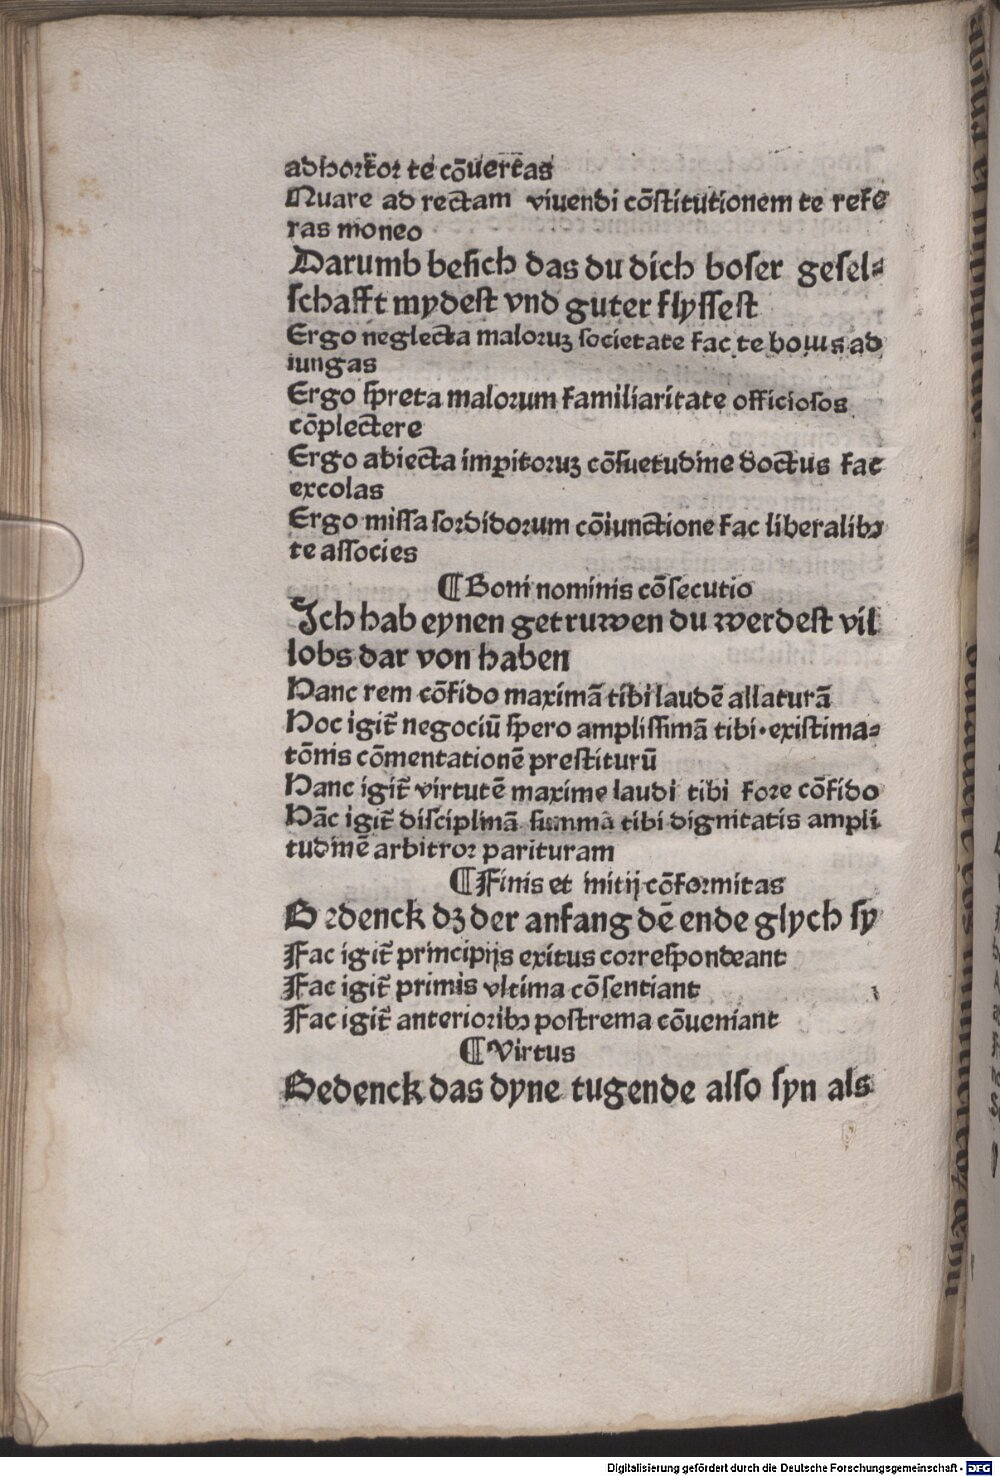 adhortor te cōuertas
Nuare ad rectam viuendi cōstitutionem te refe
ras moneo
Darumb besich das du dich boser gesel⸗
schafft mydest vnd guter flyssest
Ergo neglecta maloruꝫ societate fac te bonis ad
iungas
Ergo spreta malorum familiaritate officiosos
cōplectere
Ergo abiecta imꝑitoruꝫ cōsuetudine doctus fac
excolas
Ergo missa sordidorum cōiunctione fac liberalibꝰ
te associes
¶ Boni nominis cōsecutio
Ich hab eynen getruwen du werdest vil
lobs dar von haben
Hanc rem cōfido maximā tibi laudē allaturā
Hoc igit̃ negociū spero amplissimā tibi·existima⸗
tōnis cōmentationē prestiturū
Hanc igit̃ virtutē maxime laudi tibi fore cōfido
Hāc igit̃ disciplinā summā tibi dignitatis ampli
tudinē arbitror parituram
¶ Finis et initij cōformitas
Bedenck dꝫ der anfang dē ende glych sy
Fac igit̃ principijs exitus correspondeant
Fac igit̃ primis vltima cōsentiant
Fac igit̃ anterioribꝰ postrema cōueniant
¶ Virtus
Bedenck das dyne tugende also syn als
Digitalisierung gefördert durch die Deutsche Forschungsgemeinschaft - DFG